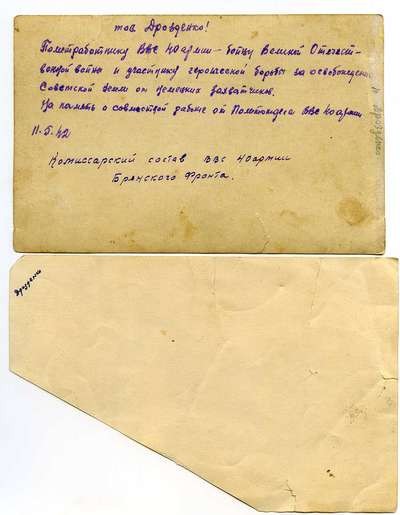 тов Дрозденко!
Политработнику ВВС 40 армии - бойцу Великой Отечест-
венной войны и участнику героической борьбы за освобождение
Советской земли от немецких захватчиков.
На память о совместной работе от Политотдела ВВС 40 армии
11.5.42
Комиссарский состав ВВС 40 армии
Брянского Фронта.
Дрозденко